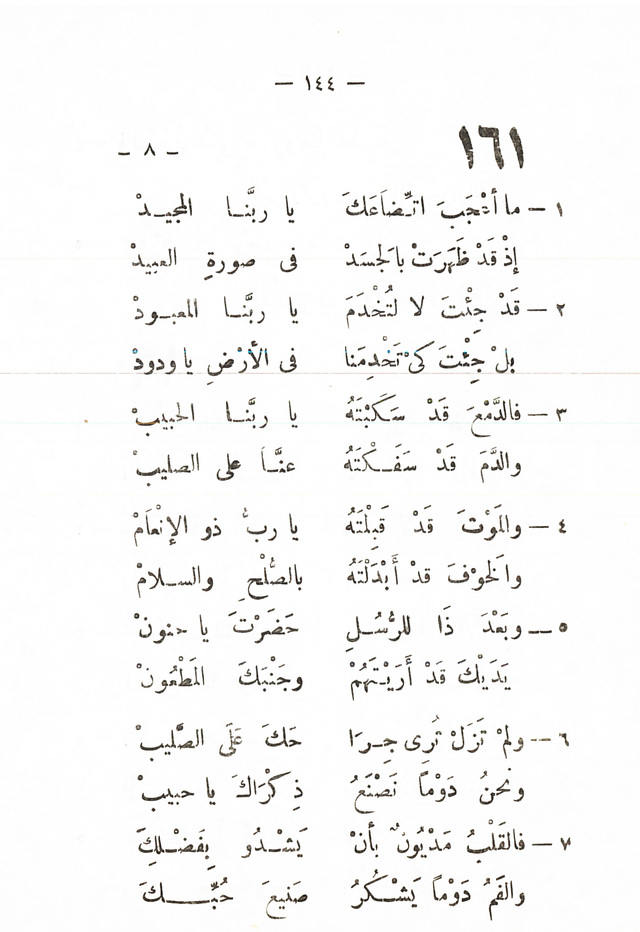 — ١٤٤ —
١٦١
– ٨ –
١ – ما أَعْجَبَ اتِّضَاعَكَ يا ربَّنا المجيدْ
إذْ قَدْ ظَهَرَتْ بالجَسَدْ فى صورةِ العبيدْ
٢ – قَدْ جِئْتَ لا لتُخْدَمَ يا ربَّنا المعبودْ
بلْ جِئْتَ كىْ تَخْدِمَنا فى الأرْضِ يا ودودْ
٣ – فالدَّمْعَ قَدْ سَكَبْتَهُ يا ربَّنا الحبيبْ
والدَّمَ قَدْ سَفَكْتَهُ عنَّا على الصليبْ
٤ – والمَوْتَ قَدْ قَبِلْتَهُ يا ربُّ ذو الإنْعَامْ
والخَوْفَ قدْ أَبْدَلْتَهُ بالصُّلْحِ والسلامْ
٥ – وبَعْدَ ذَا للرُّسُلِ حَضَرْتَ يا حنونْ
يَدَيْكَ قَدْ أَرَيْتَهُمْ وجَنْبَكَ المَطْعُونْ
٦ – ولمْ تَزَلْ تُرِى جِرَا حَكَ عَلَى الصَّليبْ
ونحنُ دَوْماً نَصْنَعُ ذِكْرَاكَ يا حبيبْ
٧ – فالقَلْبُ مَدْيُونٌ بأنْ يَشْدُو بِفَضْلِكَ
والفَمُ دَوْماً يَشْكُرُ صَنِيعَ حُبِّكَ